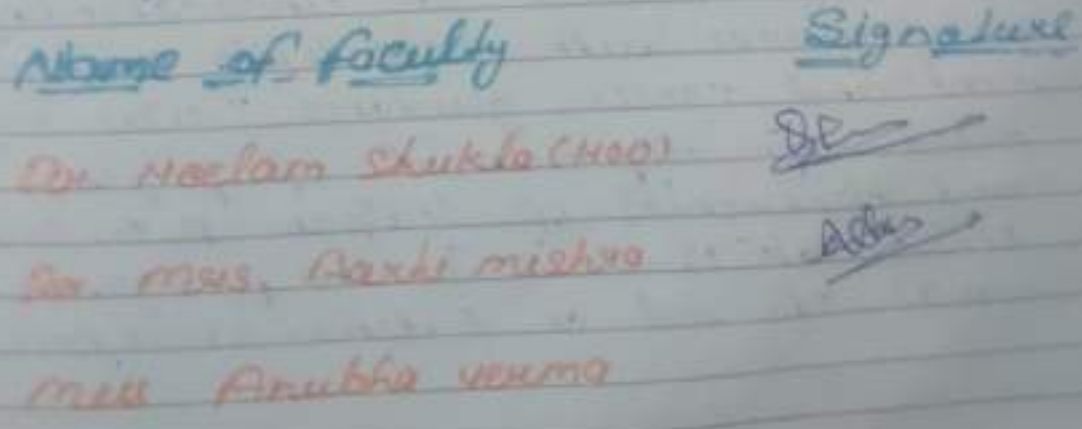 Name of faculty Signature
Dr. Neelam Shukla (HOD)
Mrs. Aarti mishra
Miss Anubha verma